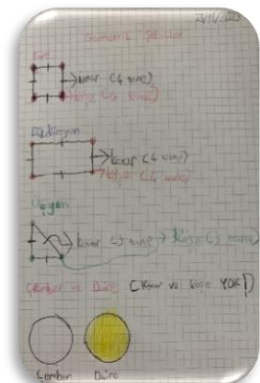 23/11/2023
Geometrik Şekiller
Kare
kenar (4 tane)
köşe (4 tane)
Dikdörtgen
kenar (4 tane)
köşe (4 tane)
Üçgen
kenar (3 tane) Köşe (3 tane)
Çember ve Daire (Kenar ve köşe YOK!)
Çember Daire